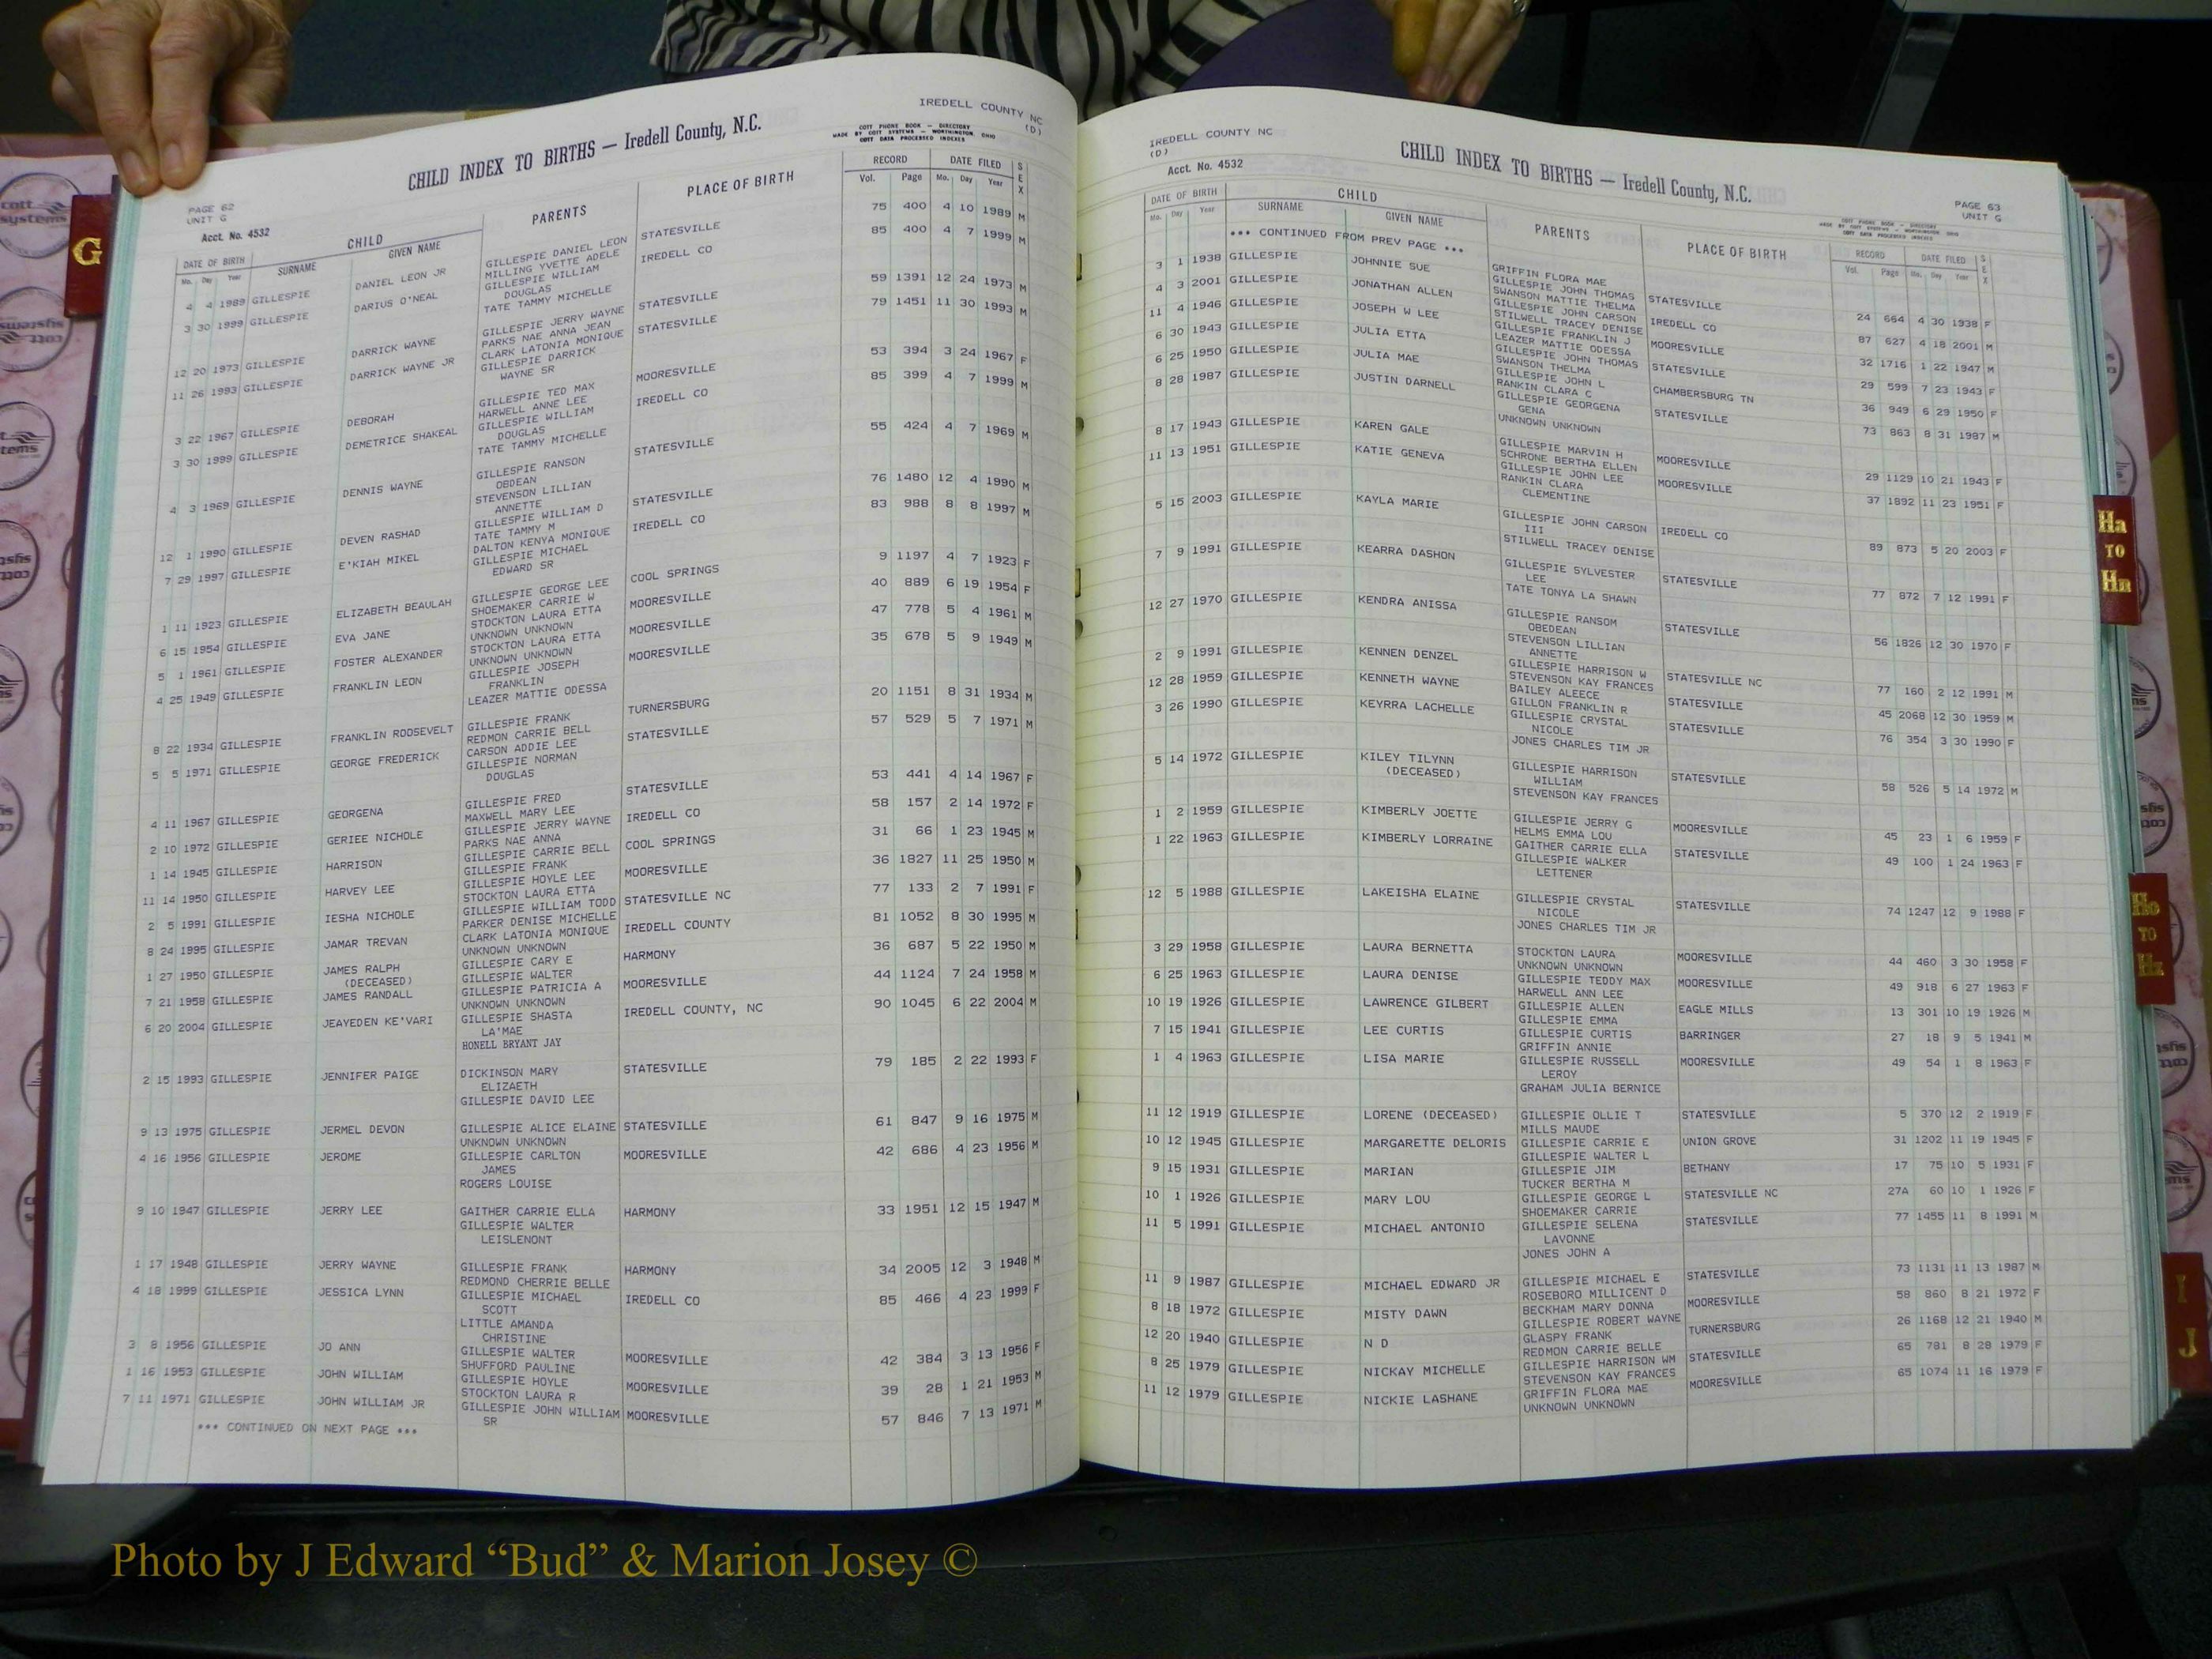 IREDELL COUNTY NC
(D)
CHILD INDEX TO BIRTHS — Iredell County, N.C.
COTT PHONE BOOK — DIRECTORY
MADE BY COTT SYSTEMS — WORTHINGTON, OHIO
COTT DATA PROCESSED INDEXES
PAGE 62
UNIT G
Acct. No. 4532
DATE OF BIRTH CHILD PARENTS PLACE OF BIRTH RECORD DATE FILED SEX
Mo. Day Year SURNAME GIVEN NAME Vol. Page Mo. Day Year
4 4 1989 GILLESPIE DANIEL LEON JR GILLESPIE DANIEL LEON STATESVILLE 75 400 4 10 1989 M
MILLING YVETTE ADELE
3 30 1999 GILLESPIE DARIUS O'NEAL GILLESPIE WILLIAM IREDELL CO 85 400 4 7 1999 M
DOUGLAS
TATE TAMMY MICHELLE
12 20 1973 GILLESPIE DARRICK WAYNE GILLESPIE JERRY WAYNE STATESVILLE 59 1391 12 24 1973 M
PARKS NAE ANNA JEAN
11 26 1993 GILLESPIE DARRICK WAYNE JR CLARK LATONIA MONIQUE STATESVILLE 79 1451 11 30 1993 M
GILLESPIE DARRICK
WAYNE SR
3 22 1967 GILLESPIE DEBORAH GILLESPIE TED MAX MOORESVILLE 53 394 3 24 1967 F
HARWELL ANNE LEE
3 30 1999 GILLESPIE DEMETRICE SHAKEAL GILLESPIE WILLIAM IREDELL CO 85 399 4 7 1999 M
DOUGLAS
TATE TAMMY MICHELLE
4 3 1969 GILLESPIE DENNIS WAYNE GILLESPIE RANSON STATESVILLE 55 424 4 7 1969 M
OBDEAN
STEVENSON LILLIAN
ANNETTE
12 1 1990 GILLESPIE DEVEN RASHAD GILLESPIE WILLIAM D STATESVILLE 76 1480 12 4 1990 M
TATE TAMMY M
7 29 1997 GILLESPIE E'KIAH MIKEL DALTON KENYA MONIQUE IREDELL CO 83 988 8 8 1997 M
GILLESPIE MICHAEL
EDWARD SR
1 11 1923 GILLESPIE ELIZABETH BEAULAH GILLESPIE GEORGE LEE COOL SPRINGS 9 1197 4 7 1923 F
SHOEMAKER CARRIE W
6 15 1954 GILLESPIE EVA JANE STOCKTON LAURA ETTA MOORESVILLE 40 889 6 19 1954 F
UNKNOWN UNKNOWN
5 1 1961 GILLESPIE FOSTER ALEXANDER STOCKTON LAURA ETTA MOORESVILLE 47 778 5 4 1961 M
UNKNOWN UNKNOWN
4 25 1949 GILLESPIE FRANKLIN LEON GILLESPIE JOSEPH MOORESVILLE 35 678 5 9 1949 M
FRANKLIN
LEAZER MATTIE ODESSA
8 22 1934 GILLESPIE FRANKLIN ROOSEVELT GILLESPIE FRANK TURNERSBURG 20 1151 8 31 1934 M
REDMON CARRIE BELL
5 5 1971 GILLESPIE GEORGE FREDERICK CARSON ADDIE LEE STATESVILLE 57 529 5 7 1971 M
GILLESPIE NORMAN
DOUGLAS
4 11 1967 GILLESPIE GEORGENA GILLESPIE FRED STATESVILLE 53 441 4 14 1967 F
MAXWELL MARY LEE
2 10 1972 GILLESPIE GERIEE NICHOLE GILLESPIE JERRY WAYNE IREDELL CO 58 157 2 14 1972 F
PARKS NAE ANNA
1 14 1945 GILLESPIE HARRISON GILLESPIE CARRIE BELL COOL SPRINGS 31 66 1 23 1945 M
GILLESPIE FRANK
11 14 1950 GILLESPIE HARVEY LEE GILLESPIE HOYLE LEE MOORESVILLE 36 1827 11 25 1950 M
STOCKTON LAURA ETTA
2 5 1991 GILLESPIE IESHA NICHOLE GILLESPIE WILLIAM TODD STATESVILLE NC 77 133 2 7 1991 F
PARKER DENISE MICHELLE
8 24 1995 GILLESPIE JAMAR TREVAN CLARK LATONIA MONIQUE IREDELL COUNTY 81 1052 8 30 1995 M
UNKNOWN UNKNOWN
1 27 1950 GILLESPIE JAMES RALPH GILLESPIE CARY E HARMONY 36 687 5 22 1950 M
(DECEASED) GILLESPIE WALTER
7 21 1958 GILLESPIE JAMES RANDALL GILLESPIE PATRICIA A MOORESVILLE 44 1124 7 24 1958 M
UNKNOWN UNKNOWN
6 20 2004 GILLESPIE JEAYEDEN KE'VARI GILLESPIE SHASTA IREDELL COUNTY, NC 90 1045 6 22 2004 M
LA'MAE
HONELL BRYANT JAY
2 15 1993 GILLESPIE JENNIFER PAIGE DICKINSON MARY STATESVILLE 79 185 2 22 1993 F
ELIZAETH
GILLESPIE DAVID LEE
9 13 1975 GILLESPIE JERMEL DEVON GILLESPIE ALICE ELAINE STATESVILLE 61 847 9 16 1975 M
UNKNOWN UNKNOWN
4 16 1956 GILLESPIE JEROME GILLESPIE CARLTON MOORESVILLE 42 686 4 23 1956 M
JAMES
ROGERS LOUISE
9 10 1947 GILLESPIE JERRY LEE GAITHER CARRIE ELLA HARMONY 33 1951 12 15 1947 M
GILLESPIE WALTER
LEISLENONT
1 17 1948 GILLESPIE JERRY WAYNE GILLESPIE FRANK HARMONY 34 2005 12 3 1948 M
REDMOND CHERRIE BELLE
4 18 1999 GILLESPIE JESSICA LYNN GILLESPIE MICHAEL IREDELL CO 85 466 4 23 1999 F
SCOTT
LITTLE AMANDA
CHRISTINE
3 8 1956 GILLESPIE JO ANN GILLESPIE WALTER MOORESVILLE 42 384 3 13 1956 F
SHUFFORD PAULINE
1 16 1953 GILLESPIE JOHN WILLIAM GILLESPIE HOYLE MOORESVILLE 39 28 1 21 1953 M
STOCKTON LAURA R
7 11 1971 GILLESPIE JOHN WILLIAM JR GILLESPIE JOHN WILLIAM MOORESVILLE 57 846 7 13 1971 M
SR
*** CONTINUED ON NEXT PAGE ***
IREDELL COUNTY NC
(D)
Acct. No. 4532
CHILD INDEX TO BIRTHS — Iredell County, N.C.
PAGE 63
UNIT G
COTT PHONE BOOK — DIRECTORY
MADE BY COTT SYSTEMS — WORTHINGTON, OHIO
COTT DATA PROCESSED INDEXES
DATE OF BIRTH CHILD PARENTS PLACE OF BIRTH RECORD DATE FILED SEX
Mo. Day Year SURNAME GIVEN NAME Vol. Page Mo. Day Year
*** CONTINUED FROM PREV PAGE ***
GRIFFIN FLORA MAE
3 1 1938 GILLESPIE JOHNNIE SUE GILLESPIE JOHN THOMAS STATESVILLE 24 664 4 30 1938 F
SWANSON MATTIE THELMA
4 3 2001 GILLESPIE JONATHAN ALLEN GILLESPIE JOHN CARSON IREDELL CO 87 627 4 18 2001 M
STILWELL TRACEY DENISE
11 4 1946 GILLESPIE JOSEPH W LEE GILLESPIE FRANKLIN J MOORESVILLE 32 1716 1 22 1947 M
LEAZER MATTIE ODESSA
6 30 1943 GILLESPIE JULIA ETTA GILLESPIE JOHN THOMAS STATESVILLE 29 599 7 23 1943 F
SWANSON THELMA
6 25 1950 GILLESPIE JULIA MAE GILLESPIE JOHN L CHAMBERSBURG TN 36 949 6 29 1950 F
RANKIN CLARA C
8 28 1987 GILLESPIE JUSTIN DARNELL GILLESPIE GEORGENA STATESVILLE 73 863 8 31 1987 M
GENA
UNKNOWN UNKNOWN
8 17 1943 GILLESPIE KAREN GALE GILLESPIE MARVIN H MOORESVILLE 29 1129 10 21 1943 F
SCHRONE BERTHA ELLEN
11 13 1951 GILLESPIE KATIE GENEVA GILLESPIE JOHN LEE MOORESVILLE 37 1892 11 23 1951 F
RANKIN CLARA
CLEMENTINE
5 15 2003 GILLESPIE KAYLA MARIE GILLESPIE JOHN CARSON IREDELL CO 89 873 5 20 2003 F
III
STILWELL TRACEY DENISE
7 9 1991 GILLESPIE KEARRA DASHON GILLESPIE SYLVESTER STATESVILLE 77 872 7 12 1991 F
LEE
TATE TONYA LA SHAWN
12 27 1970 GILLESPIE KENDRA ANISSA GILLESPIE RANSOM STATESVILLE 56 1826 12 30 1970 F
OBEDEAN
STEVENSON LILLIAN
ANNETTE
2 9 1991 GILLESPIE KENNEN DENZEL GILLESPIE HARRISON W STATESVILLE NC 77 160 2 12 1991 M
STEVENSON KAY FRANCES
12 28 1959 GILLESPIE KENNETH WAYNE BAILEY ALEECE STATESVILLE 45 2068 12 30 1959 M
GILLON FRANKLIN R
3 26 1990 GILLESPIE KEYRRA LACHELLE GILLESPIE CRYSTAL STATESVILLE 76 354 3 30 1990 F
NICOLE
JONES CHARLES TIM JR
5 14 1972 GILLESPIE KILEY TILYNN GILLESPIE HARRISON STATESVILLE 58 526 5 14 1972 M
(DECEASED) WILLIAM
STEVENSON KAY FRANCES
1 2 1959 GILLESPIE KIMBERLY JOETTE GILLESPIE JERRY G MOORESVILLE 45 23 1 6 1959 F
HELMS EMMA LOU
1 22 1963 GILLESPIE KIMBERLY LORRAINE GAITHER CARRIE ELLA STATESVILLE 49 100 1 24 1963 F
GILLESPIE WALKER
LETTENER
12 5 1988 GILLESPIE LAKEISHA ELAINE GILLESPIE CRYSTAL STATESVILLE 74 1247 12 9 1988 F
NICOLE
JONES CHARLES TIM JR
3 29 1958 GILLESPIE LAURA BERNETTA STOCKTON LAURA MOORESVILLE 44 460 3 30 1958 F
UNKNOWN UNKNOWN
6 25 1963 GILLESPIE LAURA DENISE GILLESPIE TEDDY MAX MOORESVILLE 49 918 6 27 1963 F
HARWELL ANN LEE
10 19 1926 GILLESPIE LAWRENCE GILBERT GILLESPIE ALLEN EAGLE MILLS 13 301 10 19 1926 M
GILLESPIE EMMA
7 15 1941 GILLESPIE LEE CURTIS GILLESPIE CURTIS BARRINGER 27 18 9 5 1941 M
GRIFFIN ANNIE
1 4 1963 GILLESPIE LISA MARIE GILLESPIE RUSSELL MOORESVILLE 49 54 1 8 1963 F
LEROY
GRAHAM JULIA BERNICE
11 12 1919 GILLESPIE LORENE (DECEASED) GILLESPIE OLLIE T STATESVILLE 5 370 12 2 1919 F
MILLS MAUDE
10 12 1945 GILLESPIE MARGARETTE DELORIS GILLESPIE CARRIE E UNION GROVE 31 1202 11 19 1945 F
GILLESPIE WALTER L
9 15 1931 GILLESPIE MARIAN GILLESPIE JIM BETHANY 17 75 10 5 1931 F
TUCKER BERTHA M
10 1 1926 GILLESPIE MARY LOU GILLESPIE GEORGE L STATESVILLE NC 27A 60 10 1 1926 F
SHOEMAKER CARRIE
11 5 1991 GILLESPIE MICHAEL ANTONIO GILLESPIE SELENA STATESVILLE 77 1455 11 8 1991 M
LAVONNE
JONES JOHN A
11 9 1987 GILLESPIE MICHAEL EDWARD JR GILLESPIE MICHAEL E STATESVILLE 73 1131 11 13 1987 M
ROSEBORO MILLICENT D
8 18 1972 GILLESPIE MISTY DAWN BECKHAM MARY DONNA MOORESVILLE 58 860 8 21 1972 F
GILLESPIE ROBERT WAYNE
12 20 1940 GILLESPIE N D GLASPY FRANK TURNERSBURG 26 1168 12 21 1940 M
REDMON CARRIE BELLE
8 25 1979 GILLESPIE NICKAY MICHELLE GILLESPIE HARRISON WM STATESVILLE 65 781 8 28 1979 F
STEVENSON KAY FRANCES
11 12 1979 GILLESPIE NICKIE LASHANE GRIFFIN FLORA MAE MOORESVILLE 65 1074 11 16 1979 F
UNKNOWN UNKNOWN
G
Ha
TO
Hn
Ho
TO
Hz
I
J
cott
systems
Photo by J Edward “Bud” & Marion Josey ©